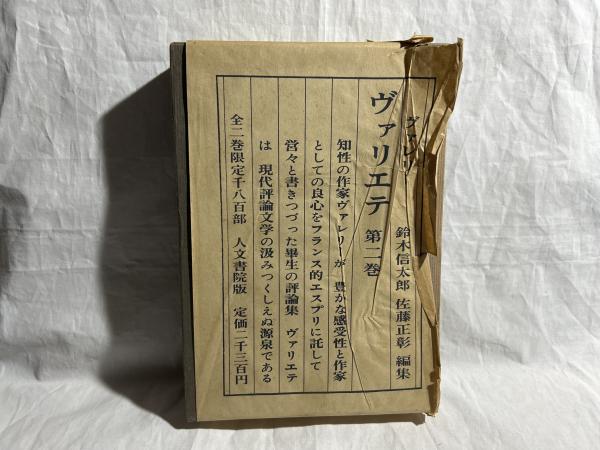 ヴァレリー
鈴木信太郎 佐藤正彰 編集
ヴァリエテ 第二巻
知性の作家ヴァレリーが 豊かな感受性と作家
としての良心をフランス的エスプリに託して
営々と書きつづった畢生の評論集 ヴァリエテ
は 現代評論文学の汲みつくしえぬ源泉である
全二巻限定千八百部 人文書院版 定価二千三百円